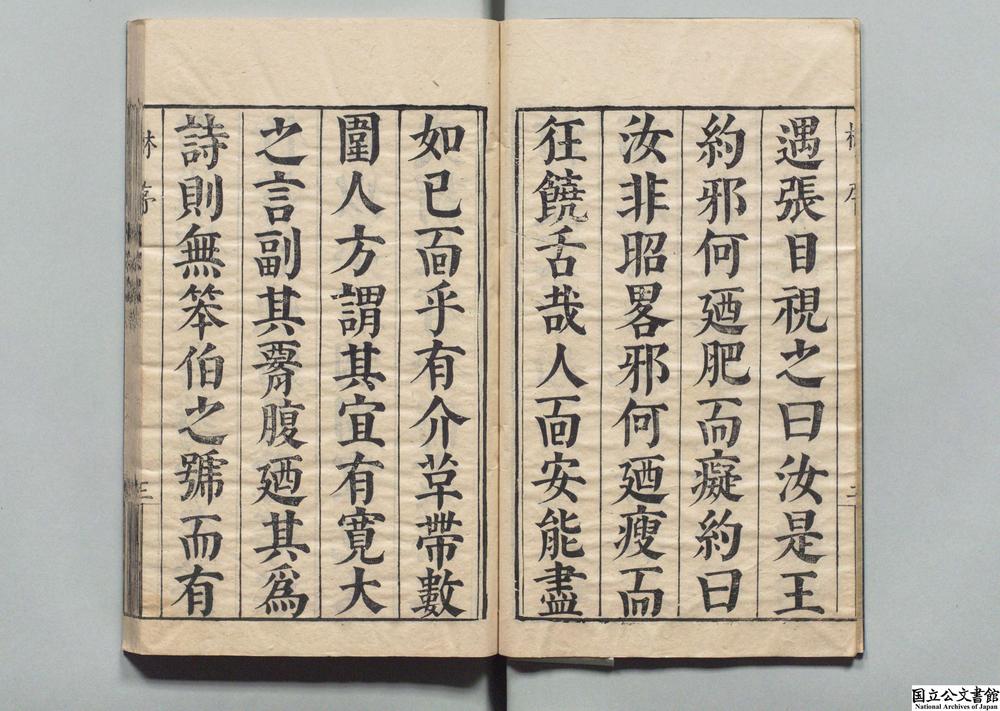 遇張目視之曰汝是王
約邪何廼肥而癡約曰
汝非昭畧邪何廼瘦而
狂饒舌哉人面安能盡
如已面乎有介草帶數
圍人方謂其宜有寬大
之言副其膺腹廼其為
詩則無笨伯之號而有
林序
三
国立公文書館
National Archives of Japan